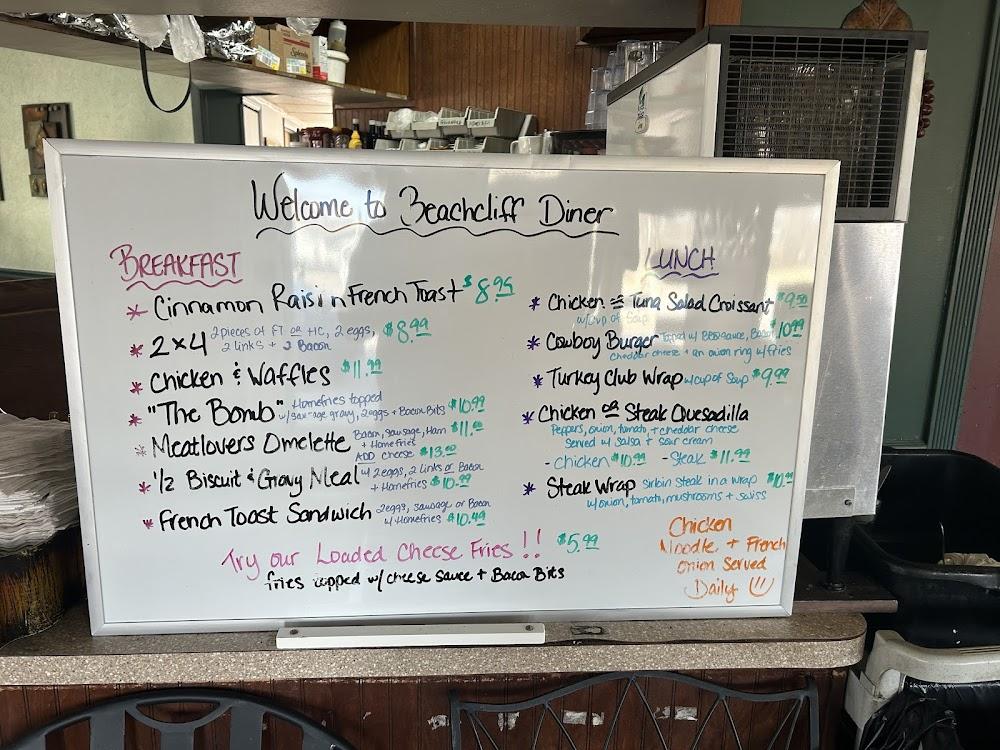 Welcome to Beachcliff Diner
BREAKFAST
* Cinnamon Raisin French Toast $8.95
* 2x4 2 pieces of FT or HC, 2 eggs, $8.99
2 links + 2 Bacon
* Chicken & Waffles $11.99
* "The Bomb" Homefries topped
w/sausage gravy, 2 eggs + Bacon Bits $10.99
* Meatlovers Omelette Bacon, Sausage, Ham
+ Homefries
ADD cheese $13.00
* 1/2 Biscuit & Gravy Meal w/ 2 eggs, 2 links or Bacon
+ Homefries $10.99
* French Toast Sandwich 2 eggs, sausage or Bacon
w/ Homefries $10.49
LUNCH
* Chicken or Tuna Salad Croissant $9.50
w/cup of Soup
* Cowboy Burger Topped w/ BBQ sauce, Bacon $10.99
cheddar cheese + an onion ring w/fries
* Turkey Club Wrap w/cup of Soup $9.99
* Chicken or Steak Quesadilla
Peppers, onion, tomato, + cheddar cheese
served w/ salsa + sour cream
- chicken $10.99 - Steak $11.99
* Steak Wrap Sirloin Steak in a wrap
w/onion, tomato, mushrooms + swiss
Try our Loaded Cheese Fries!! $5.99
fries topped w/cheese sauce + Bacon Bits
Chicken
Noodle + French
Onion Served
Daily